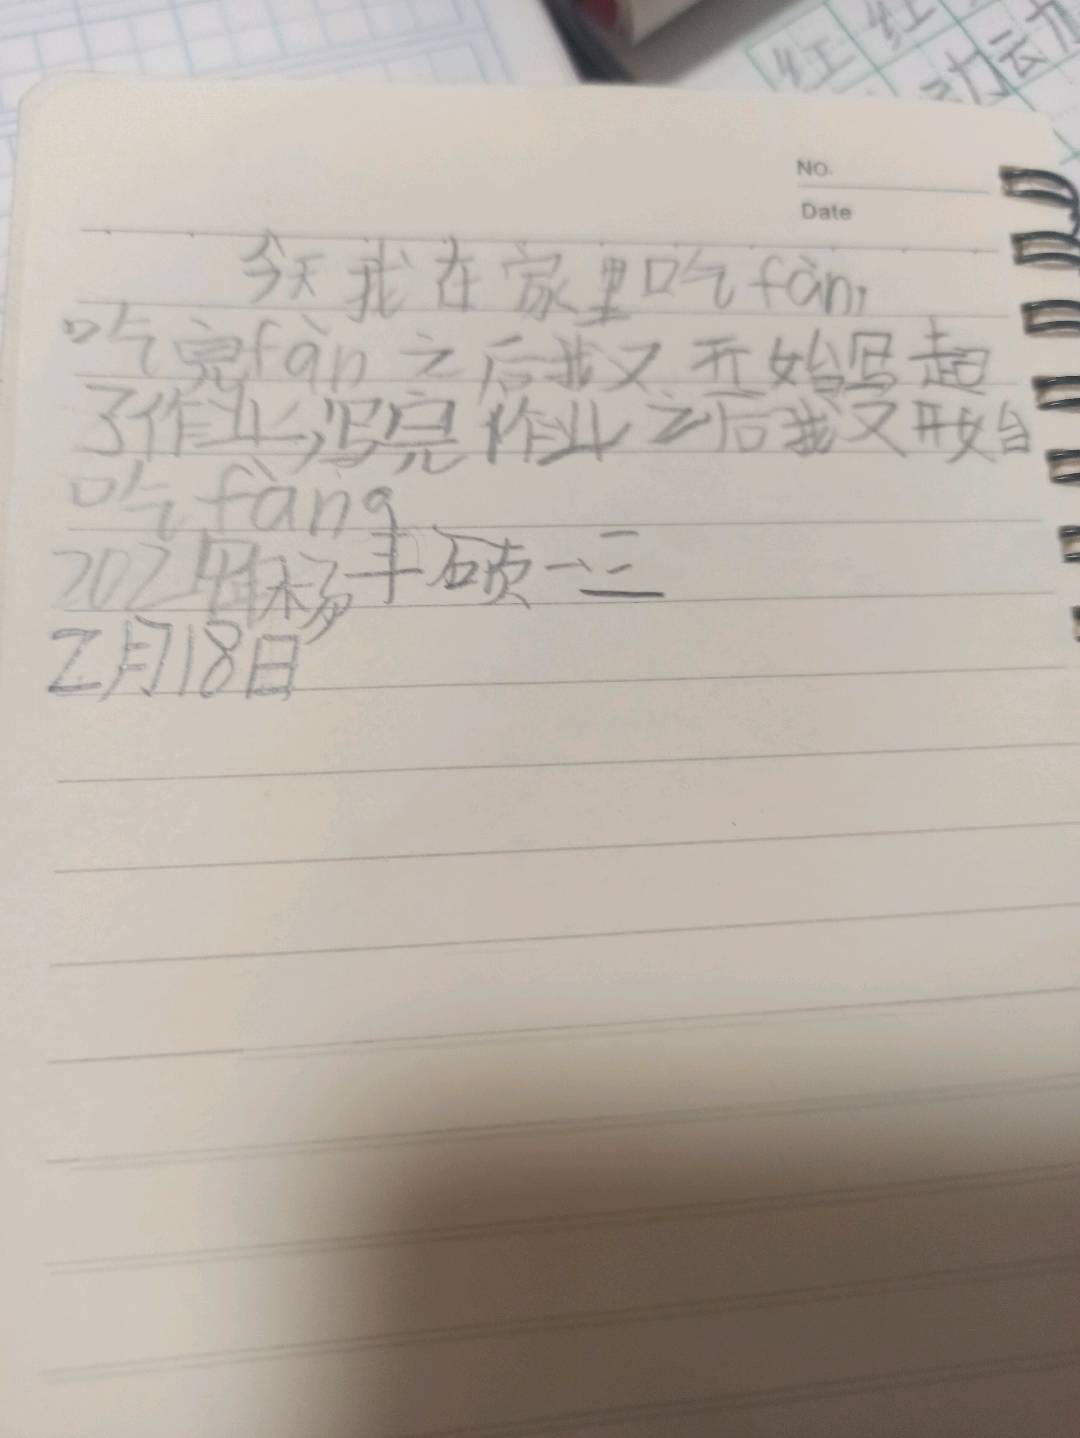 红 红
动 云力
NO.
Date
今天我在家里吃fàn,
吃完fàn之后我又开始写起
了作业,写完作业之后我又开始
吃fàn。
2024年杨丰硕一三
2月18日